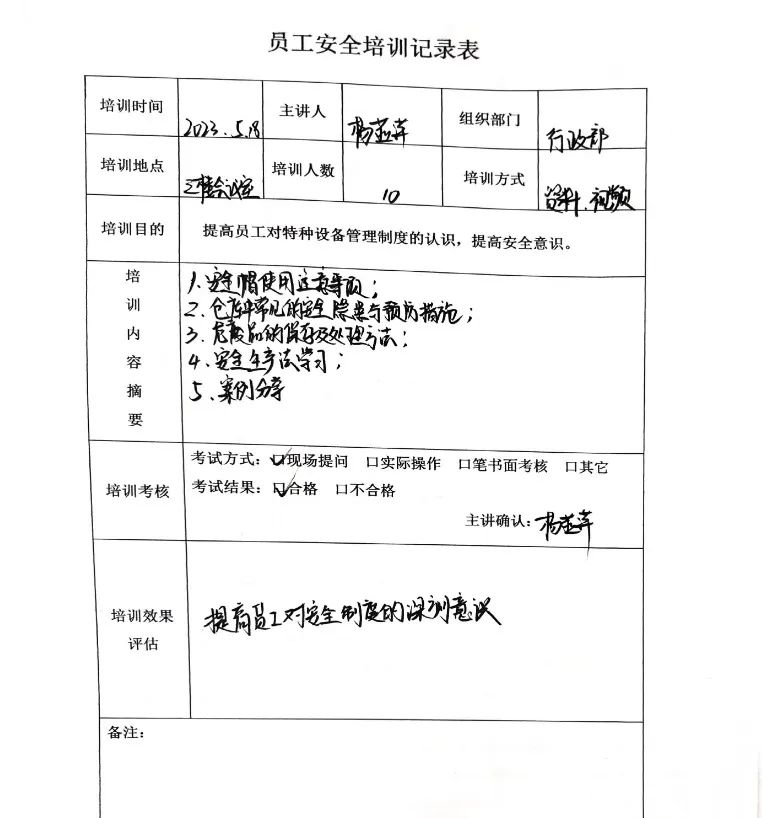 员工安全培训记录表
培训时间 2023.5.18 主讲人 杨 组织部门 行政部
培训地点 三楼会议室 培训人数 10 培训方式 资料、视频
培训目的 提高员工对特种设备管理制度的认识，提高安全意识。
培训内容摘要
1、安全帽使用注意事项；
2、仓库中常见的安全隐患与预防措施；
3、危废品的保存及处理方法；
4、安全生产法学习；
5、案例分享
培训考核
考试方式：☑现场提问 口实际操作 口笔书面考核 口其它
考试结果：☑合格 口不合格
主讲确认：杨
培训效果评估
提高员工对安全制度的深刻意识
备注：